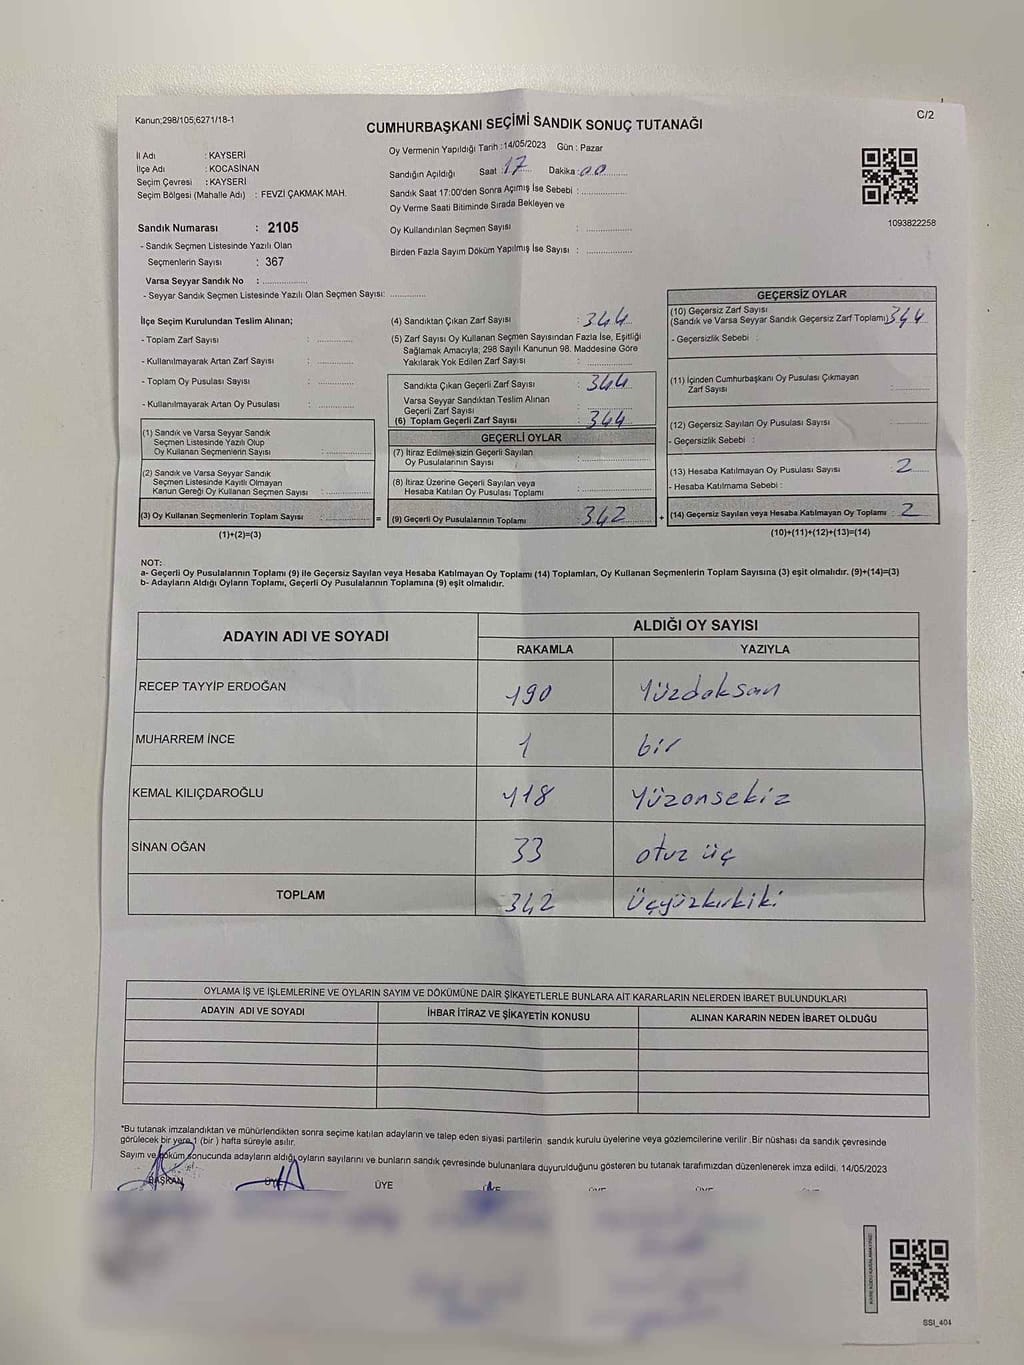 Kanun;298/105;6271/18-1
C/2
CUMHURBAŞKANI SEÇİMİ SANDIK SONUÇ TUTANAĞI
İl Adı : KAYSERİ
İlçe Adı : KOCASİNAN
Seçim Çevresi : KAYSERİ
Seçim Bölgesi (Mahalle Adı) : FEVZİ ÇAKMAK MAH.
Oy Vermenin Yapıldığı Tarih : 14/05/2023 Gün : Pazar
Sandığın Açıldığı Saat : 17 Dakika : 00
Sandık Saat 17:00'den Sonra Açımış İse Sebebi :
Oy Verme Saati Bitiminde Sırada Bekleyen ve
Oy Kullandırılan Seçmen Sayısı :
Birden Fazla Sayım Döküm Yapılmış İse Sayısı :
1093822258
Sandık Numarası : 2105
- Sandık Seçmen Listesinde Yazılı Olan
Seçmenlerin Sayısı : 367
Varsa Seyyar Sandık No :
- Seyyar Sandık Seçmen Listesinde Yazılı Olan Seçmen Sayısı:
İlçe Seçim Kurulundan Teslim Alınan;
- Toplam Zarf Sayısı :
- Kullanılmayarak Artan Zarf Sayısı :
- Toplam Oy Pusulası Sayısı :
- Kullanılmayarak Artan Oy Pusulası :
(1) Sandık ve Varsa Seyyar Sandık
Seçmen Listesinde Yazılı Olup
Oy Kullanan Seçmenlerin Sayısı :
(2) Sandık ve Varsa Seyyar Sandık
Seçmen Listesinde Kayıtlı Olmayan
Kanun Gereği Oy Kullanan Seçmen Sayısı :
(3) Oy Kullanan Seçmenlerin Toplam Sayısı : =
(1)+(2)=(3)
(4) Sandıktan Çıkan Zarf Sayısı : 344
(5) Zarf Sayısı Oy Kullanan Seçmen Sayısından Fazla İse, Eşitliği
Sağlamak Amacıyla; 298 Sayılı Kanunun 98. Maddesine Göre
Yakılarak Yok Edilen Zarf Sayısı :
Sandıkta Çıkan Geçerli Zarf Sayısı : 344
Varsa Seyyar Sandıktan Teslim Alınan
Geçerli Zarf Sayısı :
(6) Toplam Geçerli Zarf Sayısı : 344
GEÇERLİ OYLAR
(7) İtiraz Edilmeksizin Geçerli Sayılan
Oy Pusulalarının Sayısı :
(8) İtiraz Üzerine Geçerli Sayılan veya
Hesaba Katılan Oy Pusulası Toplamı :
(9) Geçerli Oy Pusulalarının Toplamı : 342 +
GEÇERSİZ OYLAR
(10) Geçersiz Zarf Sayısı
(Sandık ve Varsa Seyyar Sandık Geçersiz Zarf Toplamı) 344
- Geçersizlik Sebebi :
(11) İçinden Cumhurbaşkanı Oy Pusulası Çıkmayan
Zarf Sayısı :
(12) Geçersiz Sayılan Oy Pusulası Sayısı :
- Geçersizlik Sebebi :
(13) Hesaba Katılmayan Oy Pusulası Sayısı : 2
- Hesaba Katılmama Sebebi :
(14) Geçersiz Sayılan veya Hesaba Katılmayan Oy Toplamı : 2
(10)+(11)+(12)+(13)=(14)
NOT:
a- Geçerli Oy Pusulalarının Toplamı (9) ile Geçersiz Sayılan veya Hesaba Katılmayan Oy Toplamı (14) Toplamları, Oy Kullanan Seçmenlerin Toplam Sayısına (3) eşit olmalıdır. (9)+(14)=(3)
b- Adayların Aldığı Oyların Toplamı, Geçerli Oy Pusulalarının Toplamına (9) eşit olmalıdır.
ADAYIN ADI VE SOYADI
ALDIĞI OY SAYISI
RAKAMLA YAZIYLA
RECEP TAYYİP ERDOĞAN 190 Yüzdoksan
MUHARREM İNCE 1 bir
KEMAL KILIÇDAROĞLU 118 Yüzonsekiz
SİNAN OĞAN 33 otuz üç
TOPLAM 342 Üçyüzkırkiki
OYLAMA İŞ VE İŞLEMLERİNE VE OYLARIN SAYIM VE DÖKÜMÜNE DAİR ŞİKAYETLERLE BUNLARA AİT KARARLARIN NELERDEN İBARET BULUNDUKLARI
ADAYIN ADI VE SOYADI İHBAR İTİRAZ VE ŞİKAYETİN KONUSU ALINAN KARARIN NEDEN İBARET OLDUĞU
*Bu tutanak imzalandıktan ve mühürlendikten sonra seçime katılan adayların ve talep eden siyasi partilerin sandık kurulu üyelerine veya gözlemcilerine verilir .Bir nüshası da sandık çevresinde
görülecek bir yere 1 (bir ) hafta süreyle asılır.
Sayım ve döküm sonucunda adayların aldığı oyların sayılarını ve bunların sandık çevresinde bulunanlara duyurulduğunu gösteren bu tutanak tarafımızdan düzenlenerek imza edildi. 14/05/2023
BAŞKAN ÜYE ÜYE
SSI_404